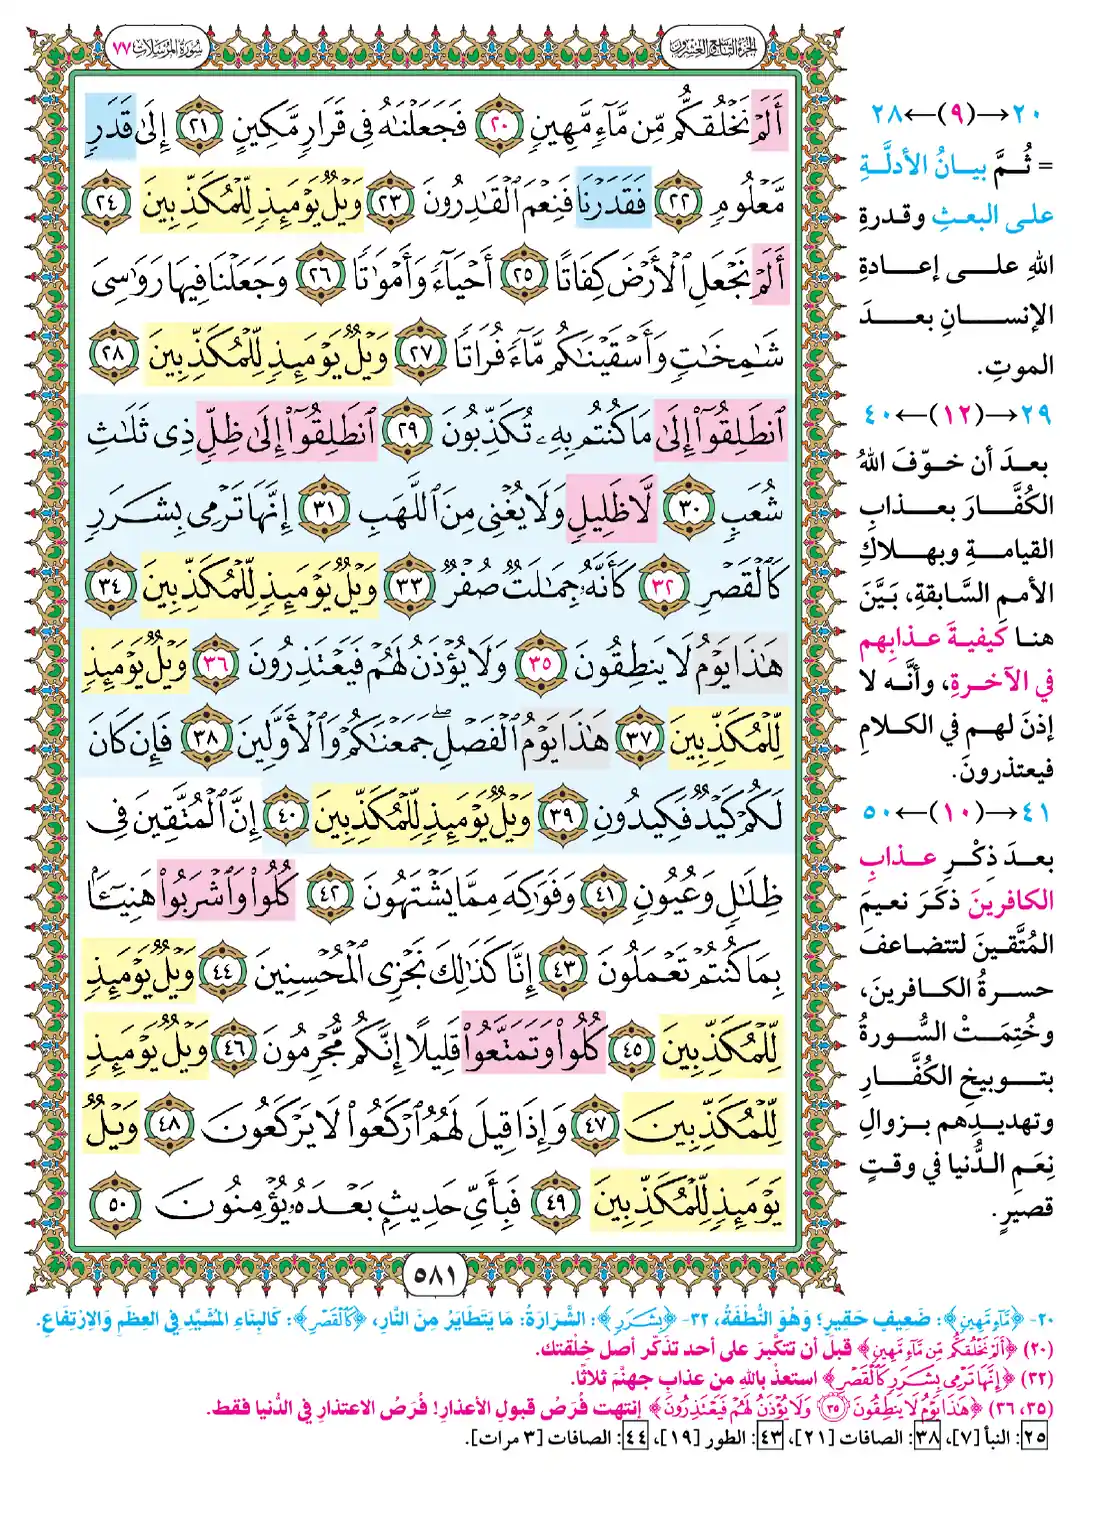 الجزء التاسع والعشرون
سورة المرسلات ٧٧
أَلَمْ نَخْلُقكُّم مِّن مَّآءٍ مَّهِينٍ ٢٠ فَجَعَلْنَٰهُ فِى قَرَارٍ مَّكِينٍ ٢١ إِلَىٰ قَدَرٍ
مَّعْلُومٍ ٢٢ فَقَدَرْنَا فَنِعْمَ ٱلْقَٰدِرُونَ ٢٣ وَيْلٌ يَوْمَئِذٍ لِّلْمُكَذِّبِينَ ٢٤
أَلَمْ نَجْعَلِ ٱلْأَرْضَ كِفَاتًا ٢٥ أَحْيَآءً وَأَمْوَٰتًا ٢٦ وَجَعَلْنَا فِيهَا رَوَٰسِىَ
شَٰمِخَٰتٍ وَأَسْقَيْنَٰكُم مَّآءً فُرَاتًا ٢٧ وَيْلٌ يَوْمَئِذٍ لِّلْمُكَذِّبِينَ ٢٨
ٱنطَلِقُوٓا۟ إِلَىٰ مَا كُنتُم بِهِۦ تُكَذِّبُونَ ٢٩ ٱنطَلِقُوٓا۟ إِلَىٰ ظِلٍّ ذِى ثَلَٰثِ
شُعَبٍ ٣٠ لَّا ظَلِيلٍ وَلَا يُغْنِى مِنَ ٱللَّهَبِ ٣١ إِنَّهَا تَرْمِى بِشَرَرٍ
كَٱلْقَصْرِ ٣٢ كَأَنَّهُۥ جِمَٰلَتٌ صُفْرٌ ٣٣ وَيْلٌ يَوْمَئِذٍ لِّلْمُكَذِّبِينَ ٣٤
هَٰذَا يَوْمُ لَا يَنطِقُونَ ٣٥ وَلَا يُؤْذَنُ لَهُمْ فَيَعْتَذِرُونَ ٣٦ وَيْلٌ يَوْمَئِذٍ
لِّلْمُكَذِّبِينَ ٣٧ هَٰذَا يَوْمُ ٱلْفَصْلِ ۖ جَمَعْنَٰكُمْ وَٱلْأَوَّلِينَ ٣٨ فَإِن كَانَ
لَكُمْ كَيْدٌ فَكِيدُونِ ٣٩ وَيْلٌ يَوْمَئِذٍ لِّلْمُكَذِّبِينَ ٤٠ إِنَّ ٱلْمُتَّقِينَ فِى
ظِلَٰلٍ وَعُيُونٍ ٤١ وَفَوَٰكِهَ مِمَّا يَشْتَهُونَ ٤٢ كُلُوا۟ وَٱشْرَبُوا۟ هَنِيٓـًٔۢا
بِمَا كُنتُمْ تَعْمَلُونَ ٤٣ إِنَّا كَذَٰلِكَ نَجْزِى ٱلْمُحْسِنِينَ ٤٤ وَيْلٌ يَوْمَئِذٍ
لِّلْمُكَذِّبِينَ ٤٥ كُلُوا۟ وَتَمَتَّعُوا۟ قَلِيلًا إِنَّكُم مُّجْرِمُونَ ٤٦ وَيْلٌ يَوْمَئِذٍ
لِّلْمُكَذِّبِينَ ٤٧ وَإِذَا قِيلَ لَهُمُ ٱرْكَعُوا۟ لَا يَرْكَعُونَ ٤٨ وَيْلٌ
يَوْمَئِذٍ لِّلْمُكَذِّبِينَ ٤٩ فَبِأَىِّ حَدِيثٍۭ بَعْدَهُۥ يُؤْمِنُونَ ٥٠
٥٨١
٢٠→(٩)←٢٨
= ثُمَّ بيانُ الأدلَّةِ
على البعثِ وقدرةِ
اللهِ على إعادةِ
الإنسانِ بعدَ
الموتِ.
٢٩→(١٢)←٤٠
بعدَ أن خوَّفَ اللهُ
الكُفَّارَ بعذابِ
القيامةِ وبهلاكِ
الأممِ السَّابقةِ، بَيَّنَ
هنا كيفيةَ عذابِهم
في الآخرةِ، وأنَّه لا
إذنَ لهم في الكلامِ
فيعتذرونَ.
٤١→(١٠)←٥٠
بعدَ ذِكْرِ عذابِ
الكافرينَ ذكَرَ نعيمَ
المُتَّقينَ لتتضاعفَ
حسرةُ الكافرينَ،
وخُتِمَتْ السُّورةُ
بتوبيخِ الكُفَّارِ
وتهديدِهم بزوالِ
نِعَمِ الدُّنيا في وقتٍ
قصيرٍ.
٢٠- ﴿مَّآءٍ مَّهِينٍ﴾: ضَعِيفٍ حَقِيرٍ؛ وَهُوَ النُّطْفَةُ، ٣٢- ﴿بِشَرَرٍ﴾: الشَّرَارَةُ: مَا يَتَطَايَرُ مِنَ النَّارِ، ﴿كَٱلْقَصْرِ﴾: كَالبِنَاءِ المُشَيَّدِ فِي العِظَمِ وَالِارْتِفَاعِ.
(٢٠) ﴿أَلَمْ نَخْلُقكُّم مِّن مَّآءٍ مَّهِينٍ﴾ قبل أن تتكَّبرَ على أحد تذكّر أصل خِلْقتك.
(٣٢) ﴿إِنَّهَا تَرْمِى بِشَرَرٍ كَٱلْقَصْرِ﴾ استعذْ باللهِ من عذابِ جهنَّمَ ثلاثًا.
(٣٥، ٣٦) ﴿هَٰذَا يَوْمُ لَا يَنطِقُونَ ٣٥ وَلَا يُؤْذَنُ لَهُمْ فَيَعْتَذِرُونَ﴾ إنتهت فُرَصُ قبولِ الأعذارِ! فُرَصُ الاعتذارِ في الدُّنيا فقط.
٢٥: النبأ [٧]، ٣٨: الصافات [٢١]، ٤٣: الطور [١٩]، ٤٤: الصافات [٣ مرات].